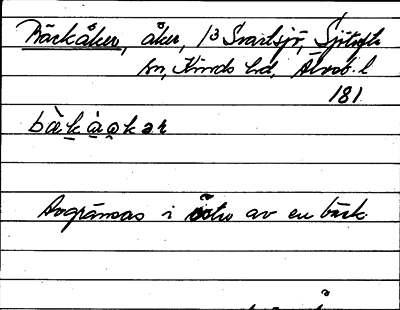 Bäckåker, åker, 13 Svartsjö, Sjötofta
sn, Kinds hd, Älvsb. l
181
bä̀kå̀kər
Avgränsas i östr av en bäck.